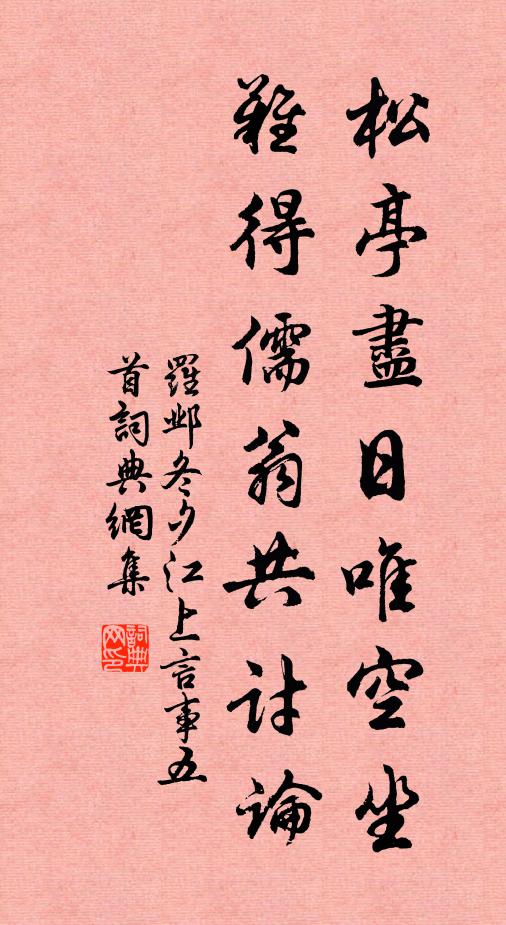 松亭盡日唯空坐
難得儒翁共討論
羅鄴冬夕江上言事五
首詞典網集
詞典
网印